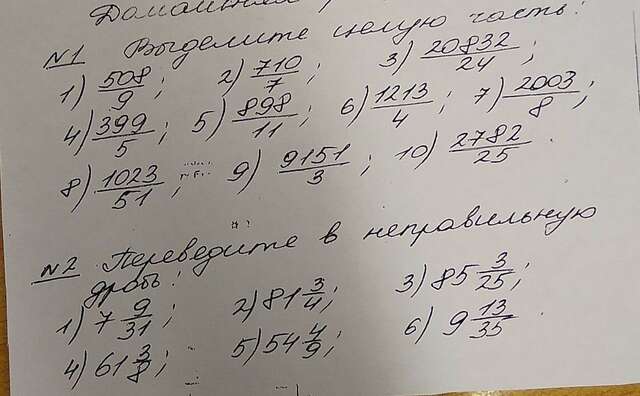 Домашняя
№1 Выделите целую часть:
1) 508/9; 2) 710/7; 3) 20832/24;
4) 399/5; 5) 898/11; 6) 1213/4; 7) 2003/8;
8) 1023/51; 9) 9151/3; 10) 2782/25.
№2 Переведите в неправильную
дробь:
1) 7 9/31; 2) 81 3/4; 3) 85 3/25;
4) 61 3/8; 5) 54 4/9; 6) 9 13/35.